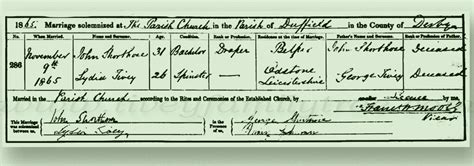 1865. Marriage solemnized at The Parish Church in the Parish of Duffield in the County of Derby
No. When Married. Name and Surname. Age. Condition. Rank or Profession. Residence at the time of Marriage. Father's Name and Surname. Rank or Profession of Father.
286 November 9th 1865 John Shorthose 31 Bachelor Draper Belper John Shorthose Deceased
Lydia Tivey 26 Spinster Odstone Leicestershire George Tivey Deceased
Married in the Parish Church according to the Rites and Ceremonies of the Established Church, by Licence by me,
This Marriage was solemnized between us, John Shorthose in the Presence of us, George Shorthose Vicar
Lydia Tivey